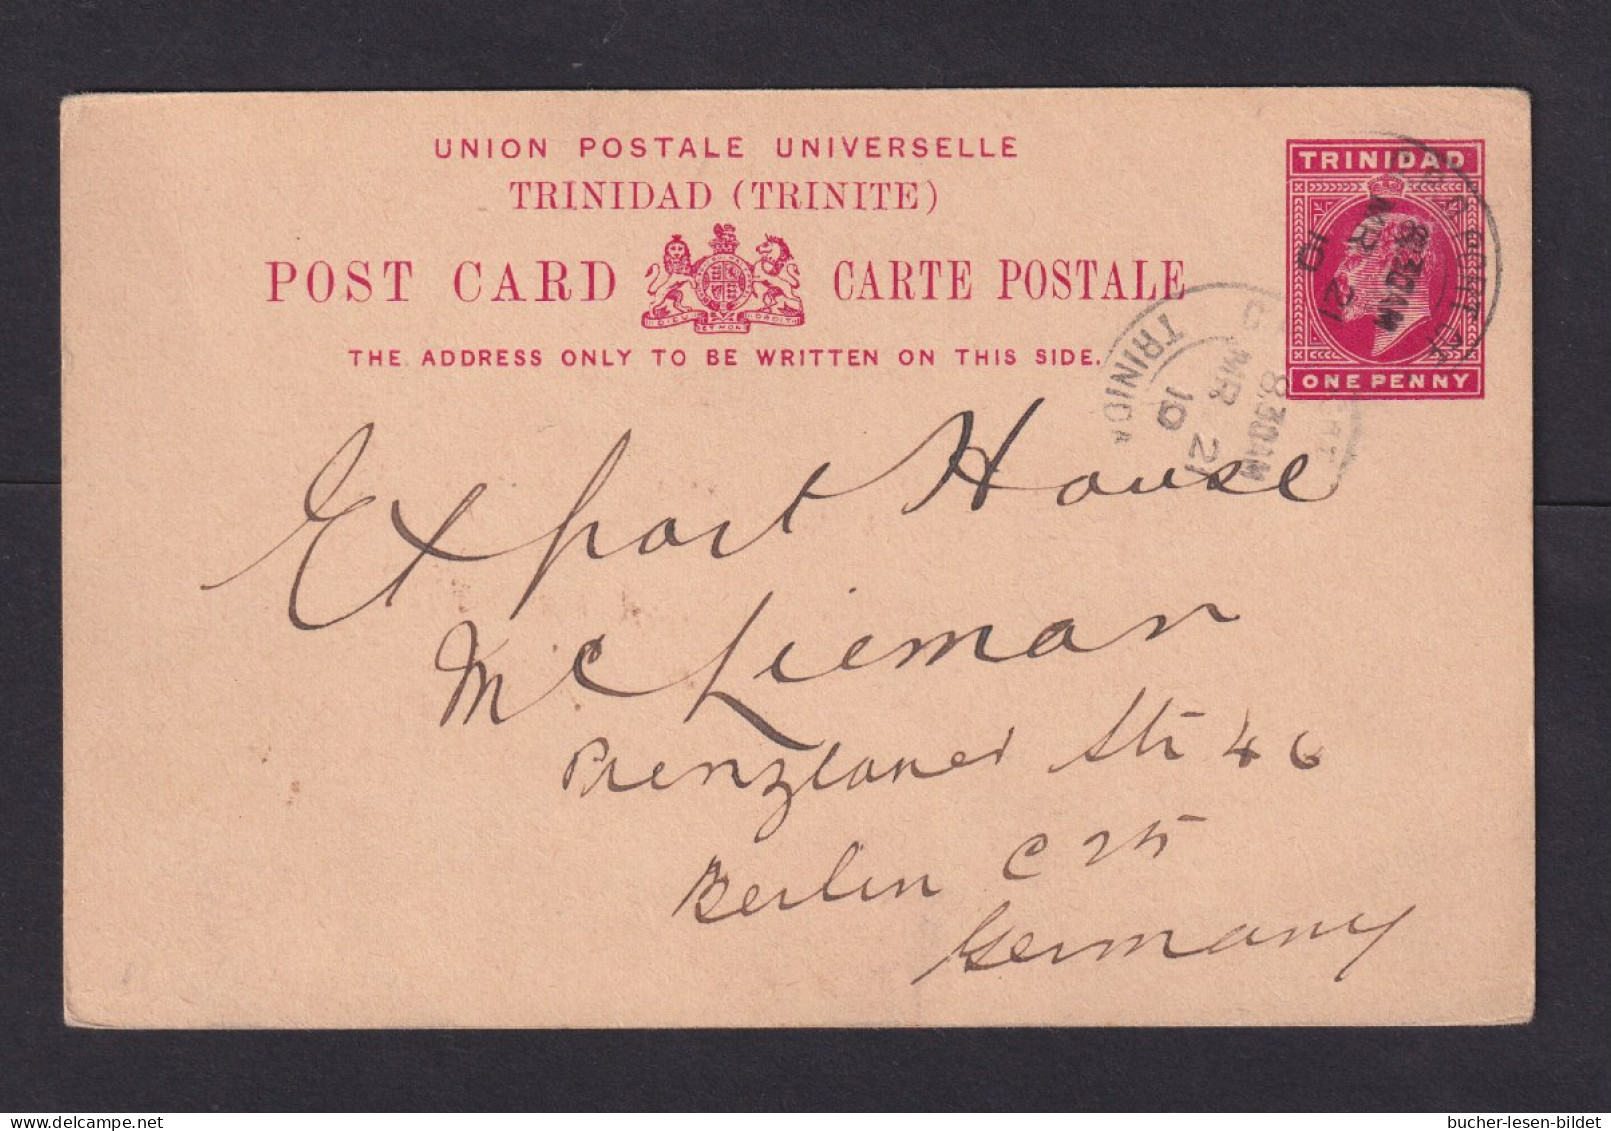 UNION POSTALE UNIVERSELLE
TRINIDAD (TRINITE)
POST CARD CARTE POSTALE
DIEU ET MON DROIT
THE ADDRESS ONLY TO BE WRITTEN ON THIS SIDE.
TRINIDAD
ONE PENNY
8.30AM
MR 21
10
TRINIDA
8.30AM
MR 21
10
Export House
Mc Lieman
Prenzlauer Str 46
Berlin C 25
Germany
bucher-lesen-bildet